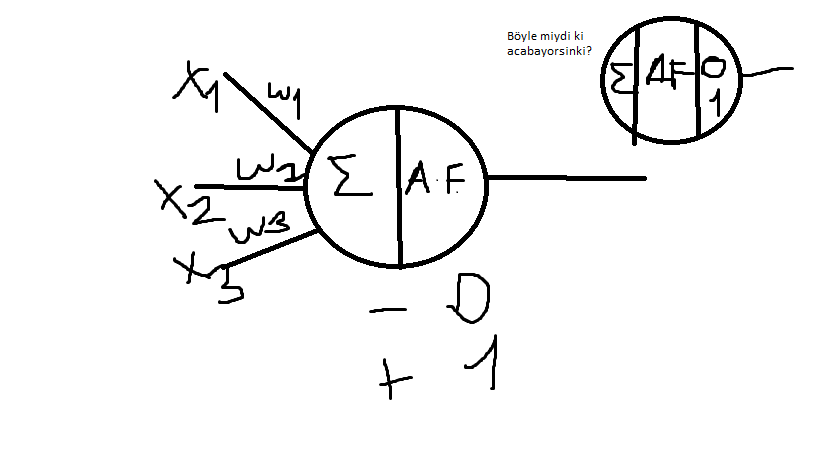 Böyle miydi ki
acabayorsinki?
Σ AF 0
1
X1 w1
X2 W2
X3 W3
Σ A.F.
- 0
+ 1